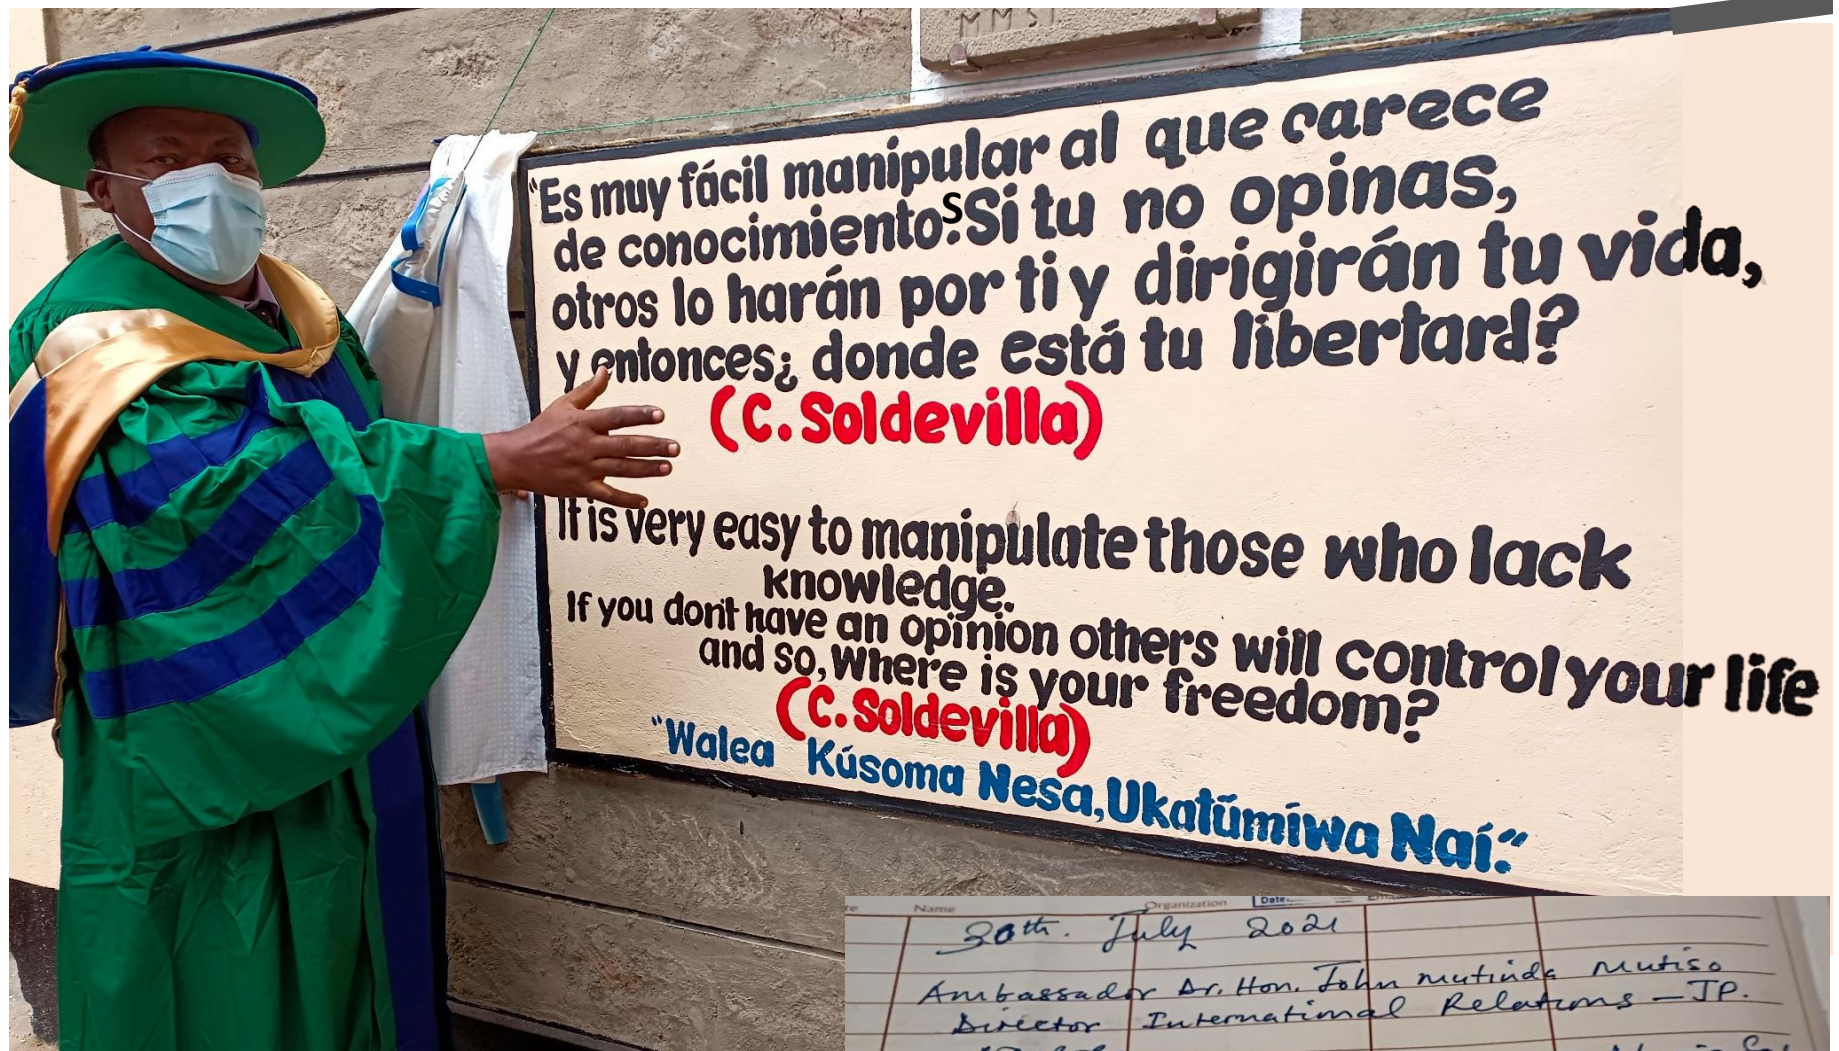 MMSI
"Es muy fácil manipular al que carece
de conocimientos.Si tu no opinas,
otros lo harán por ti y dirigirán tu vida,
y entonces¿ donde está tu libertard?
(C. Soldevilla)
It is very easy to manipulate those who lack
knowledge.
If you don't have an opinion others will control your life
and so, where is your freedom?
(C. Soldevilla)
"Walea Kúsoma Nesa, Ukatũmíwa Naí."
Name Organization Date
30th. July 2021
Ambassador Dr. Hon. John Mutinda Mutiso
Director International Relations - JP.